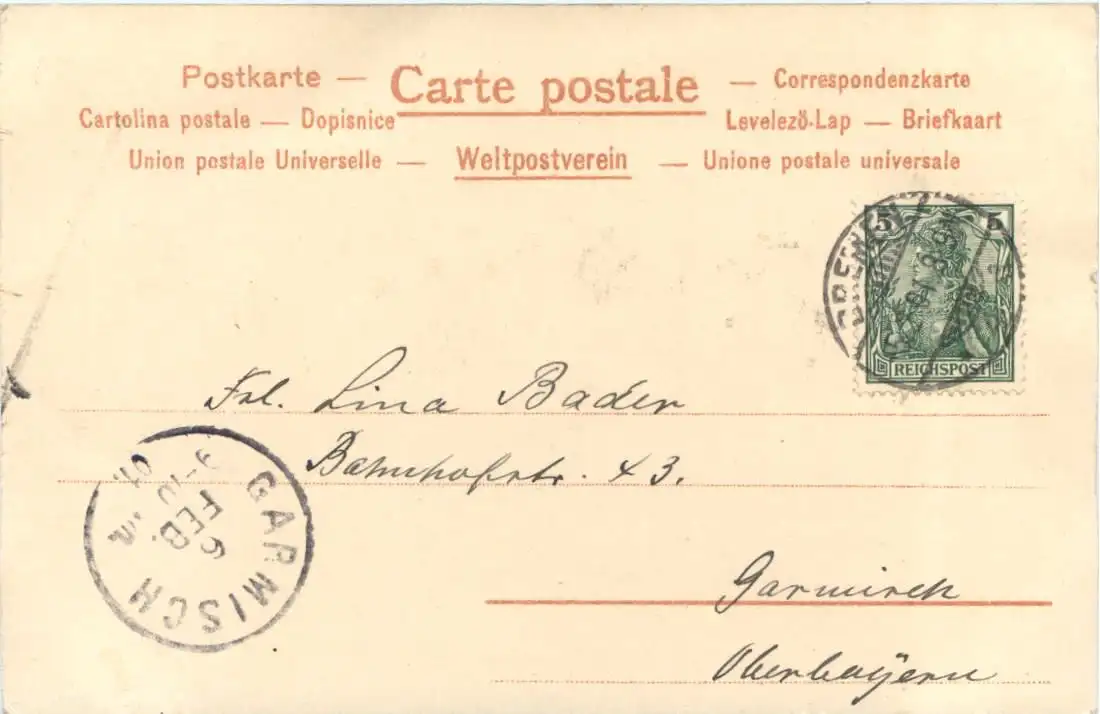 Postkarte — Carte postale — Correspondenzkarte
Cartolina postale — Dopisnice Levelező-Lap — Briefkaart
Union postale Universelle — Weltpostverein — Unione postale universale
5 5
BREMEN
REICHSPOST
Frl. Lina Bader
Bahnhofstr. 43.
GARMISCH
6
FEB.
9-10
01.
Garmisch
Oberbayern